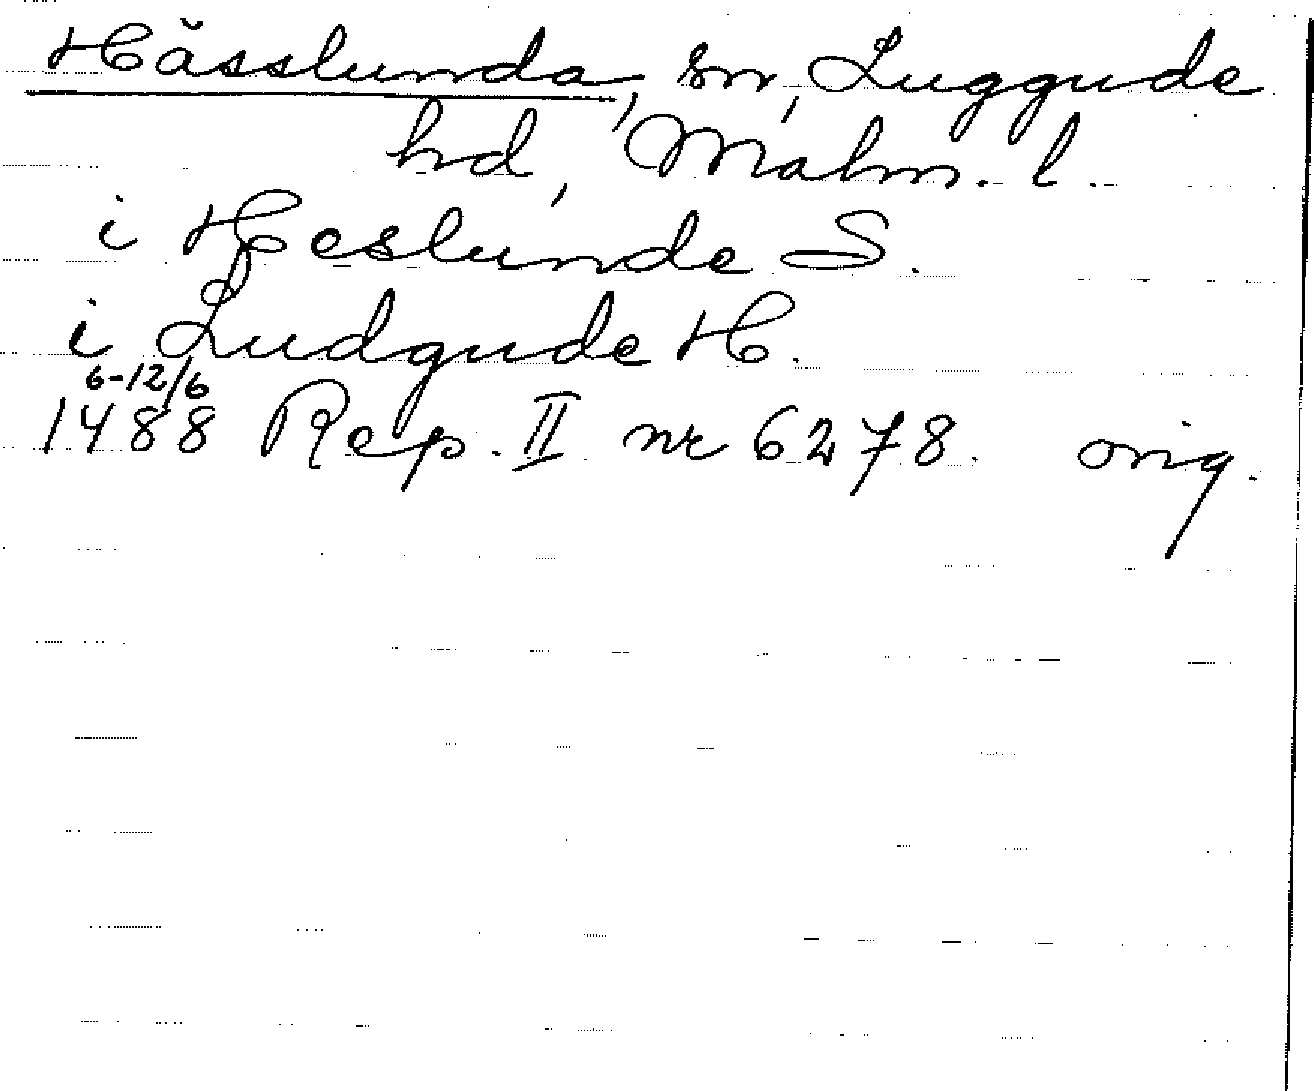 Hässlunda, sn, Luggude
hd, Malm. l.
i Heslunde S.
i Ludgude H.
6-12/6
1488 Rep. II nr 6278. orig.